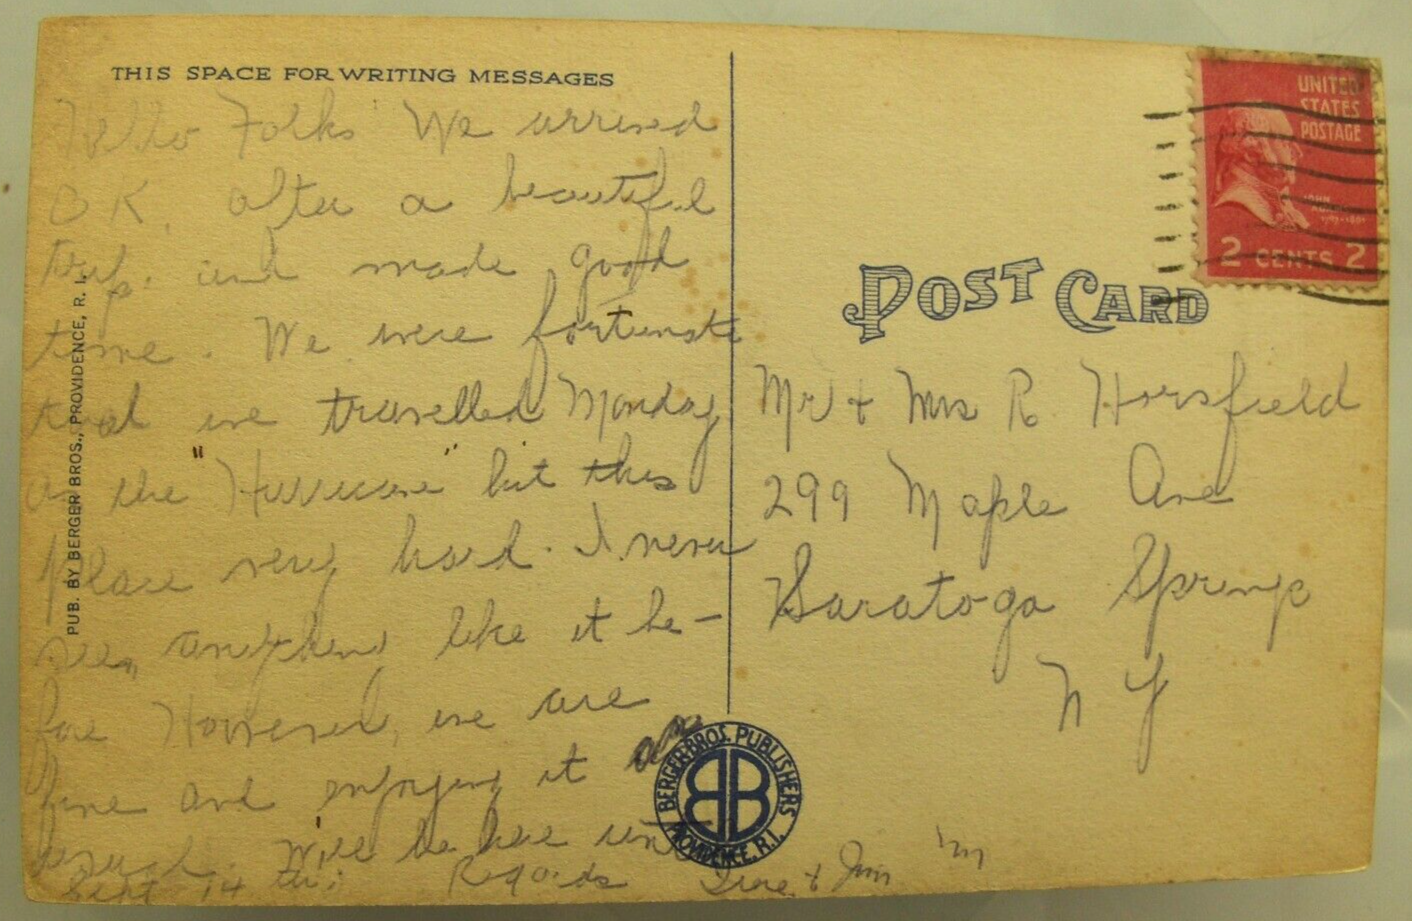 THIS SPACE FOR WRITING MESSAGES
Hello Folks We arrived
O K. after a beautiful
trip. and made good
time. We were fortunate
that we travelled Monday
as the "Hurricane" hit this
place very hard. I never
seen anything like it be-
fore However, we are
fine and enjoying it as
usual. Will be here until
Sept 14 th.
Regards
& Jim
PUB. BY BERGER BROS., PROVIDENCE, R. I.
UNITED
STATES
POSTAGE
JOHN
ADAMS
2 CENTS 2
POST CARD
Mr + Mrs R. Horsfield
299 Maple Ave
Saratoga Springs
N Y
BERGER BROS. PUBLISHERS
BB
PROVIDENCE, R.I.